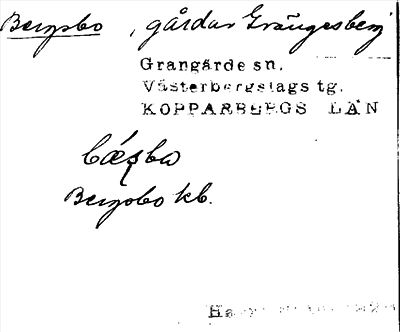 Bergsbo, gårdar Grängesberg
Grangärde sn.
Västerbergslags tg.
KOPPARBERGS LÄN
bæʂbo
Bergsbo kb.